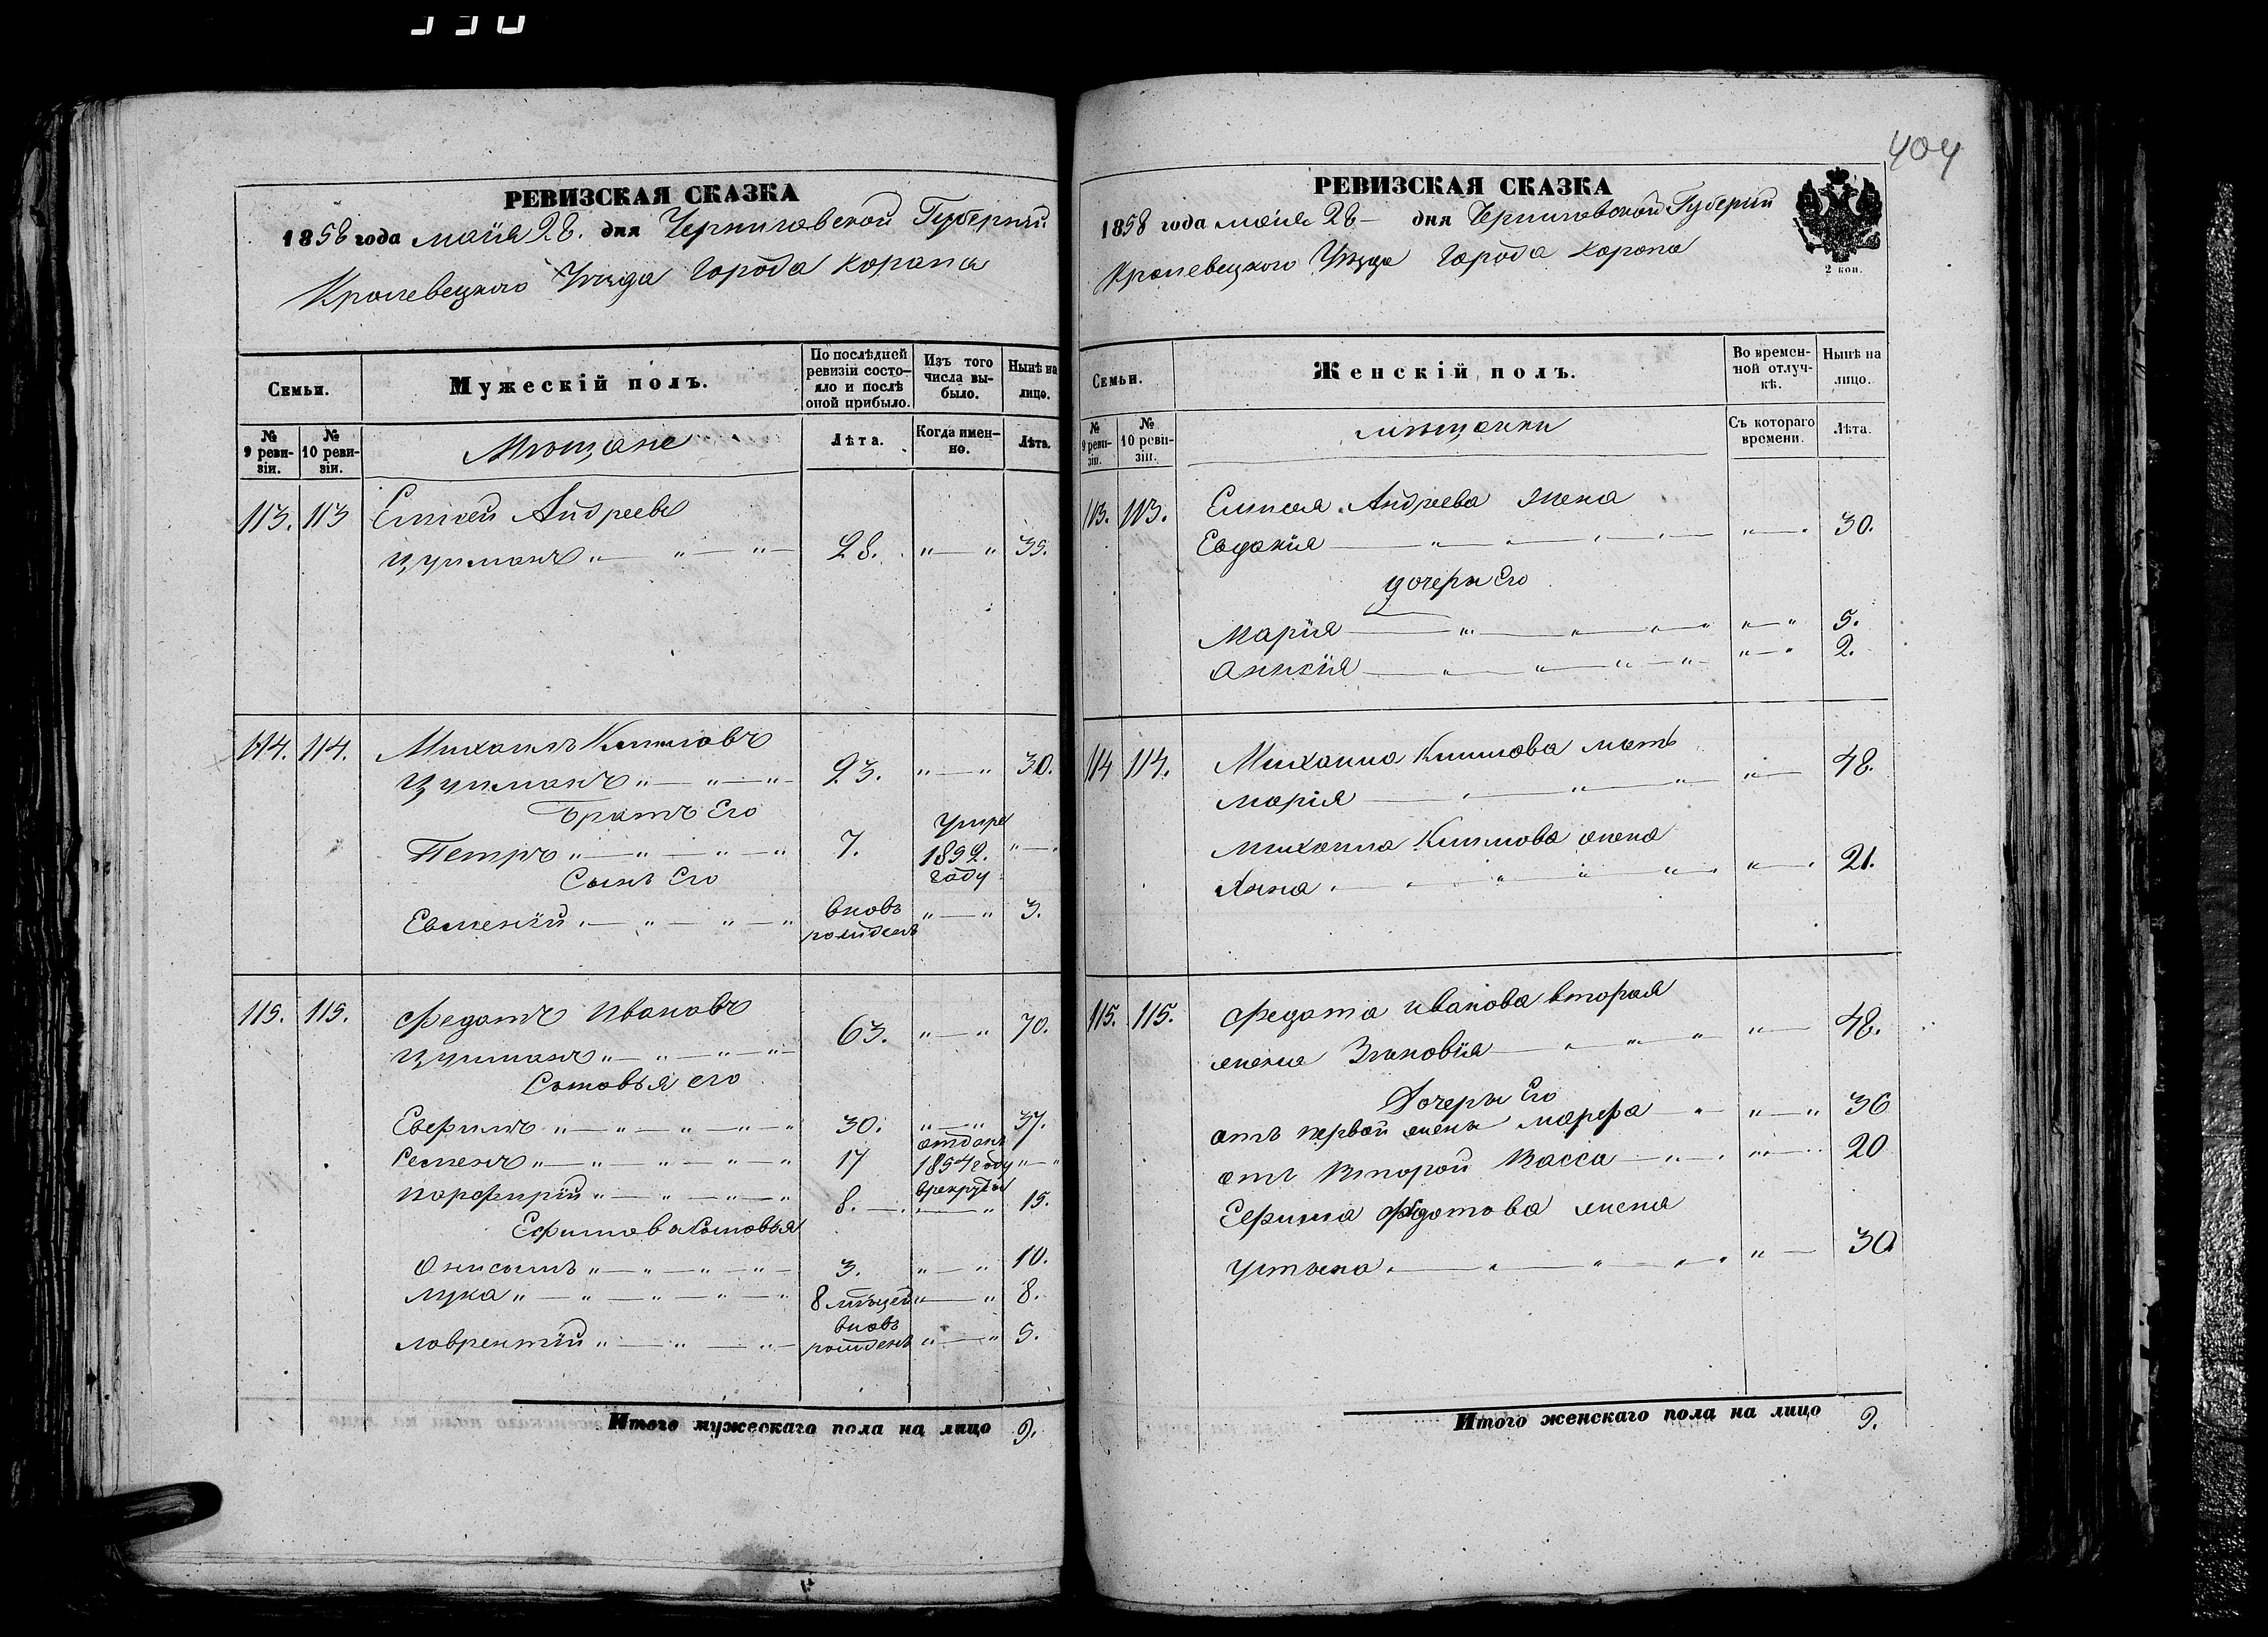 404
РЕВИЗСКАЯ СКАЗКА
1858 года маія 28. дня Черниговской Губерніи
Кролевецкого Уѣзда Города Коропа
Семьи.
Мужескій полъ.
По послѣдней ревизіи состояло и послѣ оной прибыло.
Изъ того числа выбыло.
Нынѣ на лицо.
№ 9 ревизіи.
№ 10 ревизіи.
Мѣщане
Лѣта.
Когда именно.
Лѣта.
113. 113 Елисей Андреевъ
Цупманъ „ — „ — „ — 28. „ — „ 35.
114. 114. Михаилъ Климовъ
Цупманъ „ — „ — „ — 23. „ — „ 30.
Братъ Его
Петръ „ — „ — „ — „ 7. Умре 1852. году „ —
Сынъ Его
Евмений „ — „ — „ — „ вновь рожденъ „ — „ 3.
115. 115. Федотъ Ивановъ
Цупманъ „ — „ — „ — „ — 63. „ — „ 70.
Сыновья его
Ефимъ „ — „ — „ — „ — „ 30. „ — „ 37.
Семенъ „ — „ — „ — „ — „ 17 отданъ 1854 году в рекруты „ — „
Порфирій „ — „ — „ — „ 8. — „ 15.
Ефимова Сыновья
Онисимъ „ — „ — „ — „ — 3. „ — „ 10.
Лука „ — „ — „ — „ — „ 8 мѣсцей „ — „ 8.
Лаврентій „ — „ — „ — вновь рожденъ „ — „ 5.
Итого мужескаго пола на лицо 9.
РЕВИЗСКАЯ СКАЗКА
1858 года маія 28 — дня Черниговской Губерніи
Кролевецкого Уѣзда Города Коропа
2 коп.
Семьи.
Женскій полъ.
Во временной отлучкѣ.
Нынѣ на лицо.
№ 9 ревизіи.
№ 10 ревизіи.
мѣщанки
Съ котораго времени.
Лѣта.
113. 113. Елисея Андреева жена
Евдокія — „ — „ — „ — „ — 30.
дочери Его
Марія — „ — „ — „ — „ „ — „ 5.
— „ — „ — „ — „ „ — „ 2.
114 114. Михаила Климова мать
Марія — „ — „ — „ „ — 48.
Михаила Климова жена
Анна „ — „ — „ — „ — „ „ — 21.
115. 115. Федота Иванова вторая
жена Зиновія — „ — „ — „ „ — 48.
Дочери Его
отъ первой жены Марфа — „ — „ — „ 36
отъ второй Васса — „ — „ — 20
Ефима Федотова жена
Устина „ — „ — „ — „ — „ „ — 30
Итого женскаго пола на лицо 9.